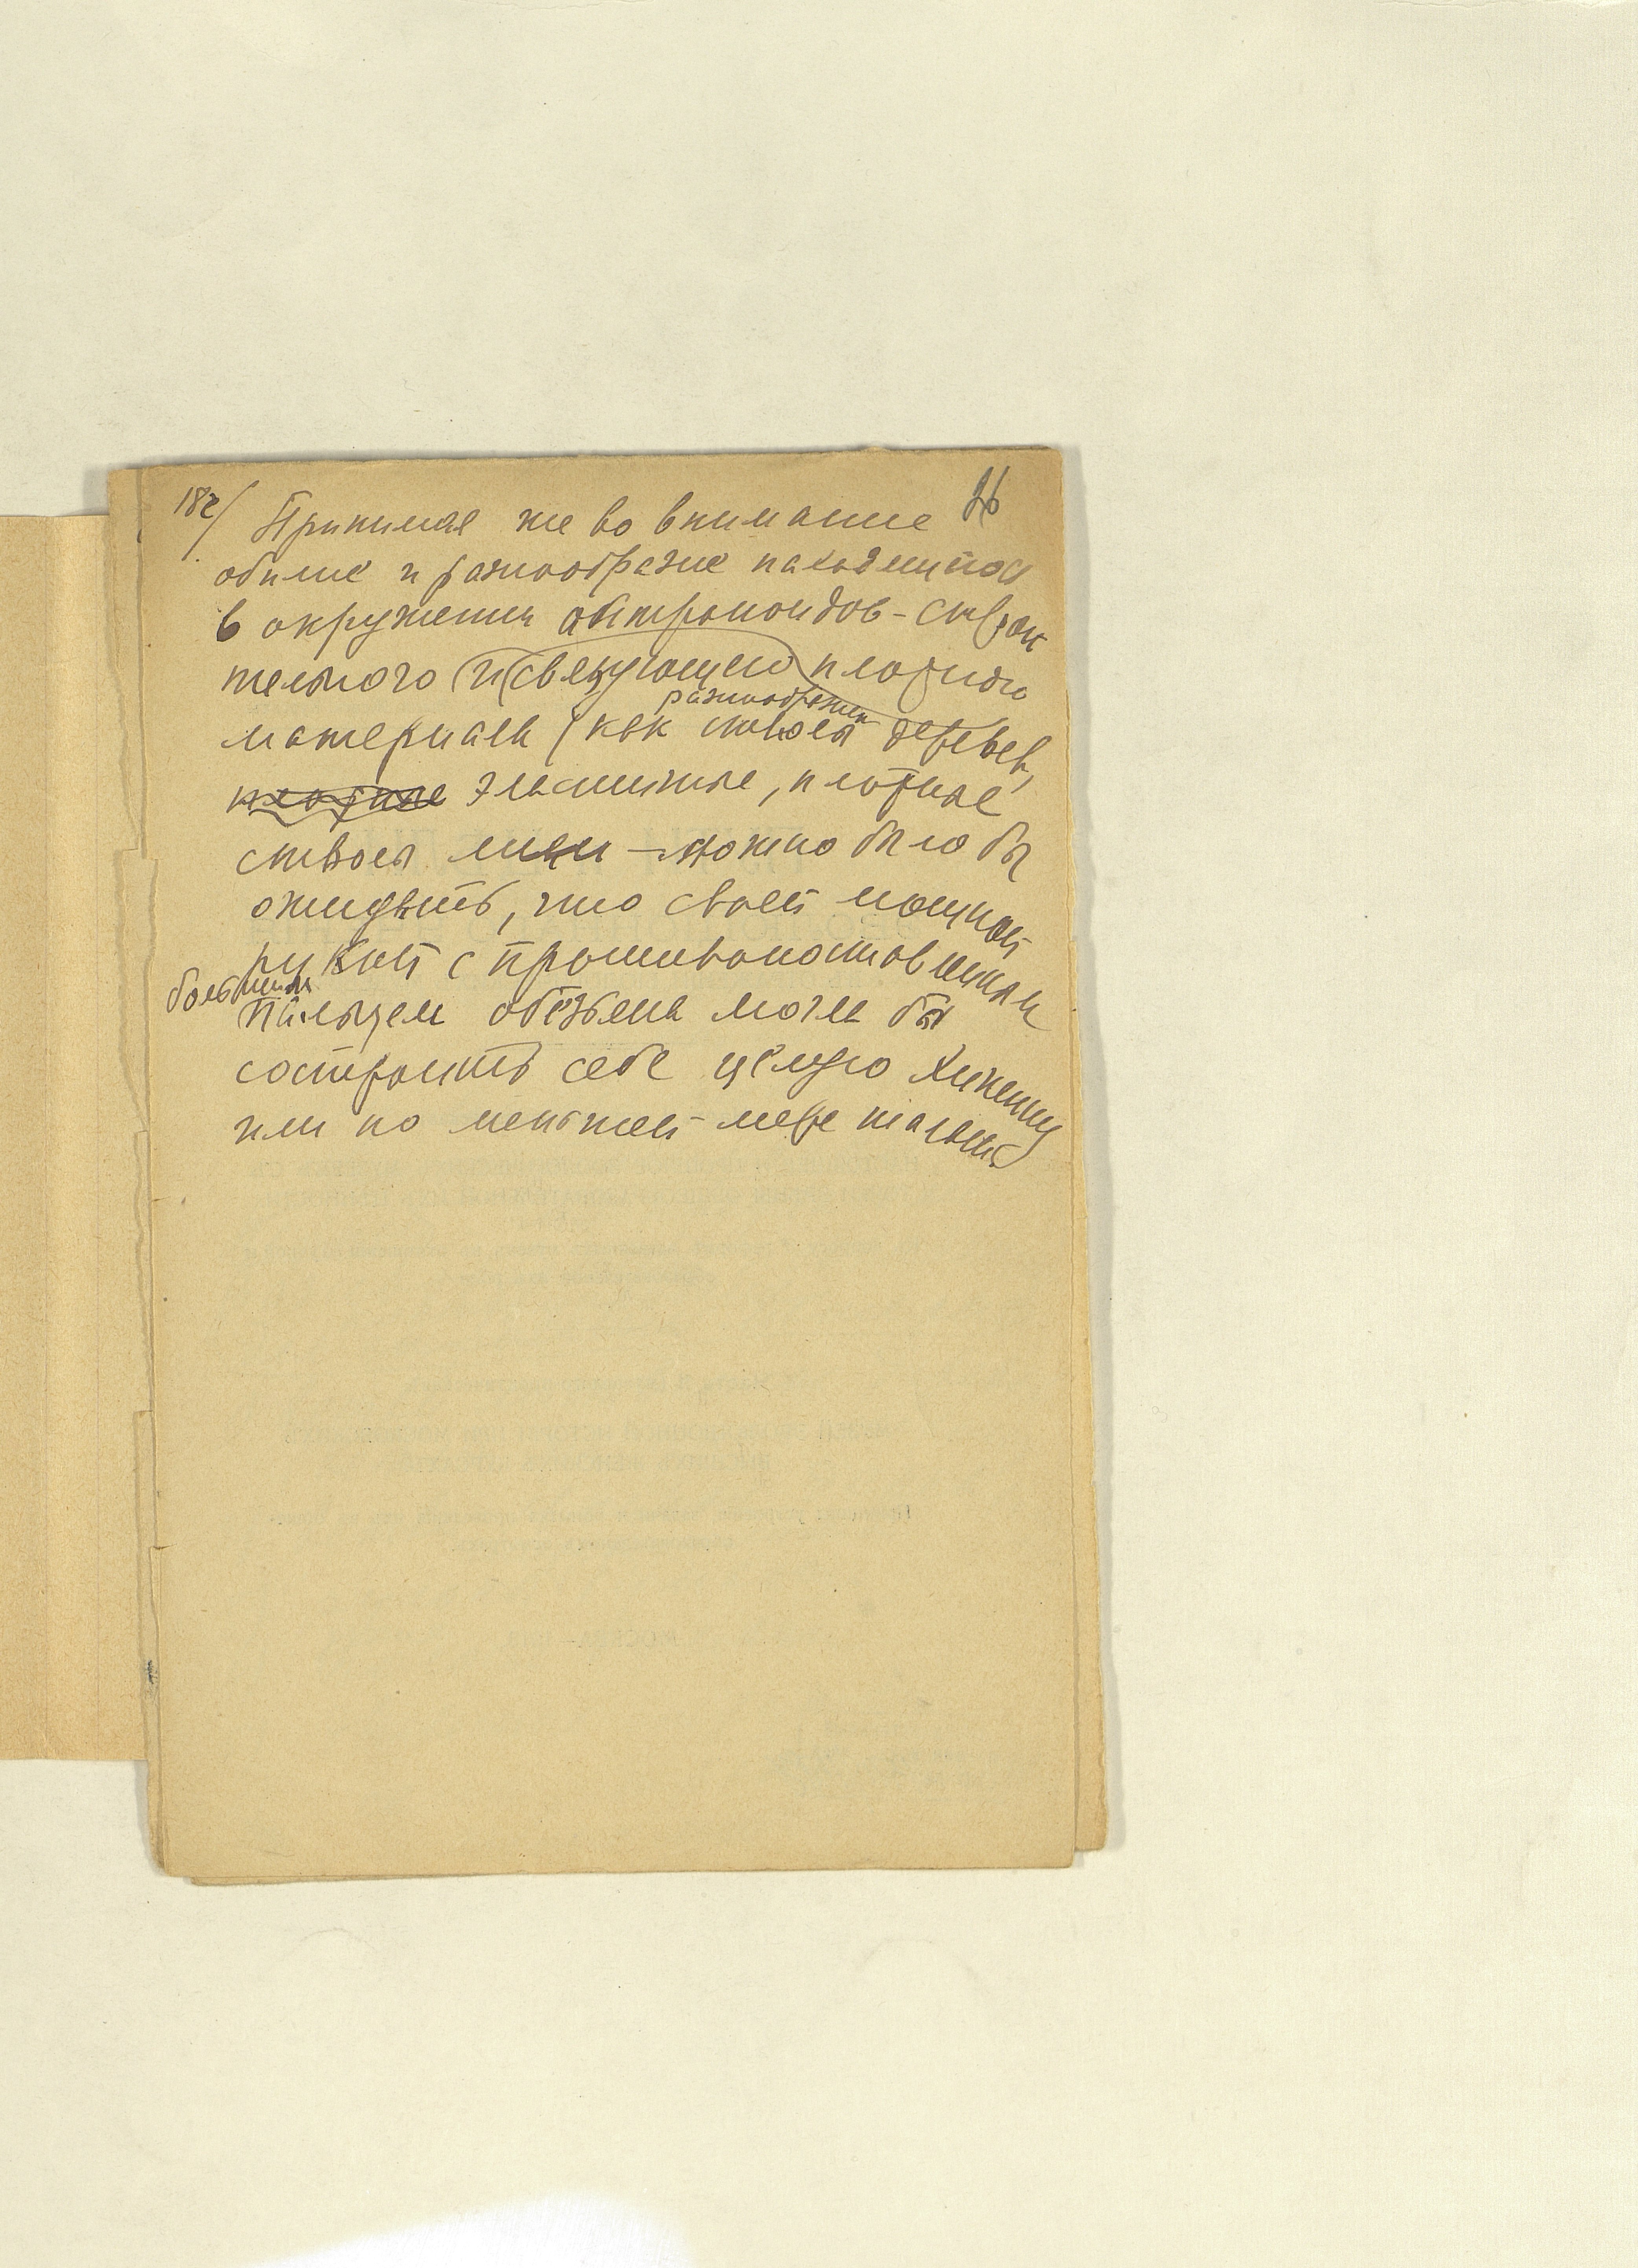 18г/ Принимая же во внимание 26
обилие и разнообразие находящегося
в окружении антропоидов - строи
тельного и связующего плотного
разнообразных
материала (как стволы деревьев,
плотные эластичные, плотные
стволы лиан - можно было бы
ожидать, что своей мощной
рукой с противопоставленным
большим
пальцем обезьяна могла бы
состроить себе целую хижину
или по меньшей мере шалаш